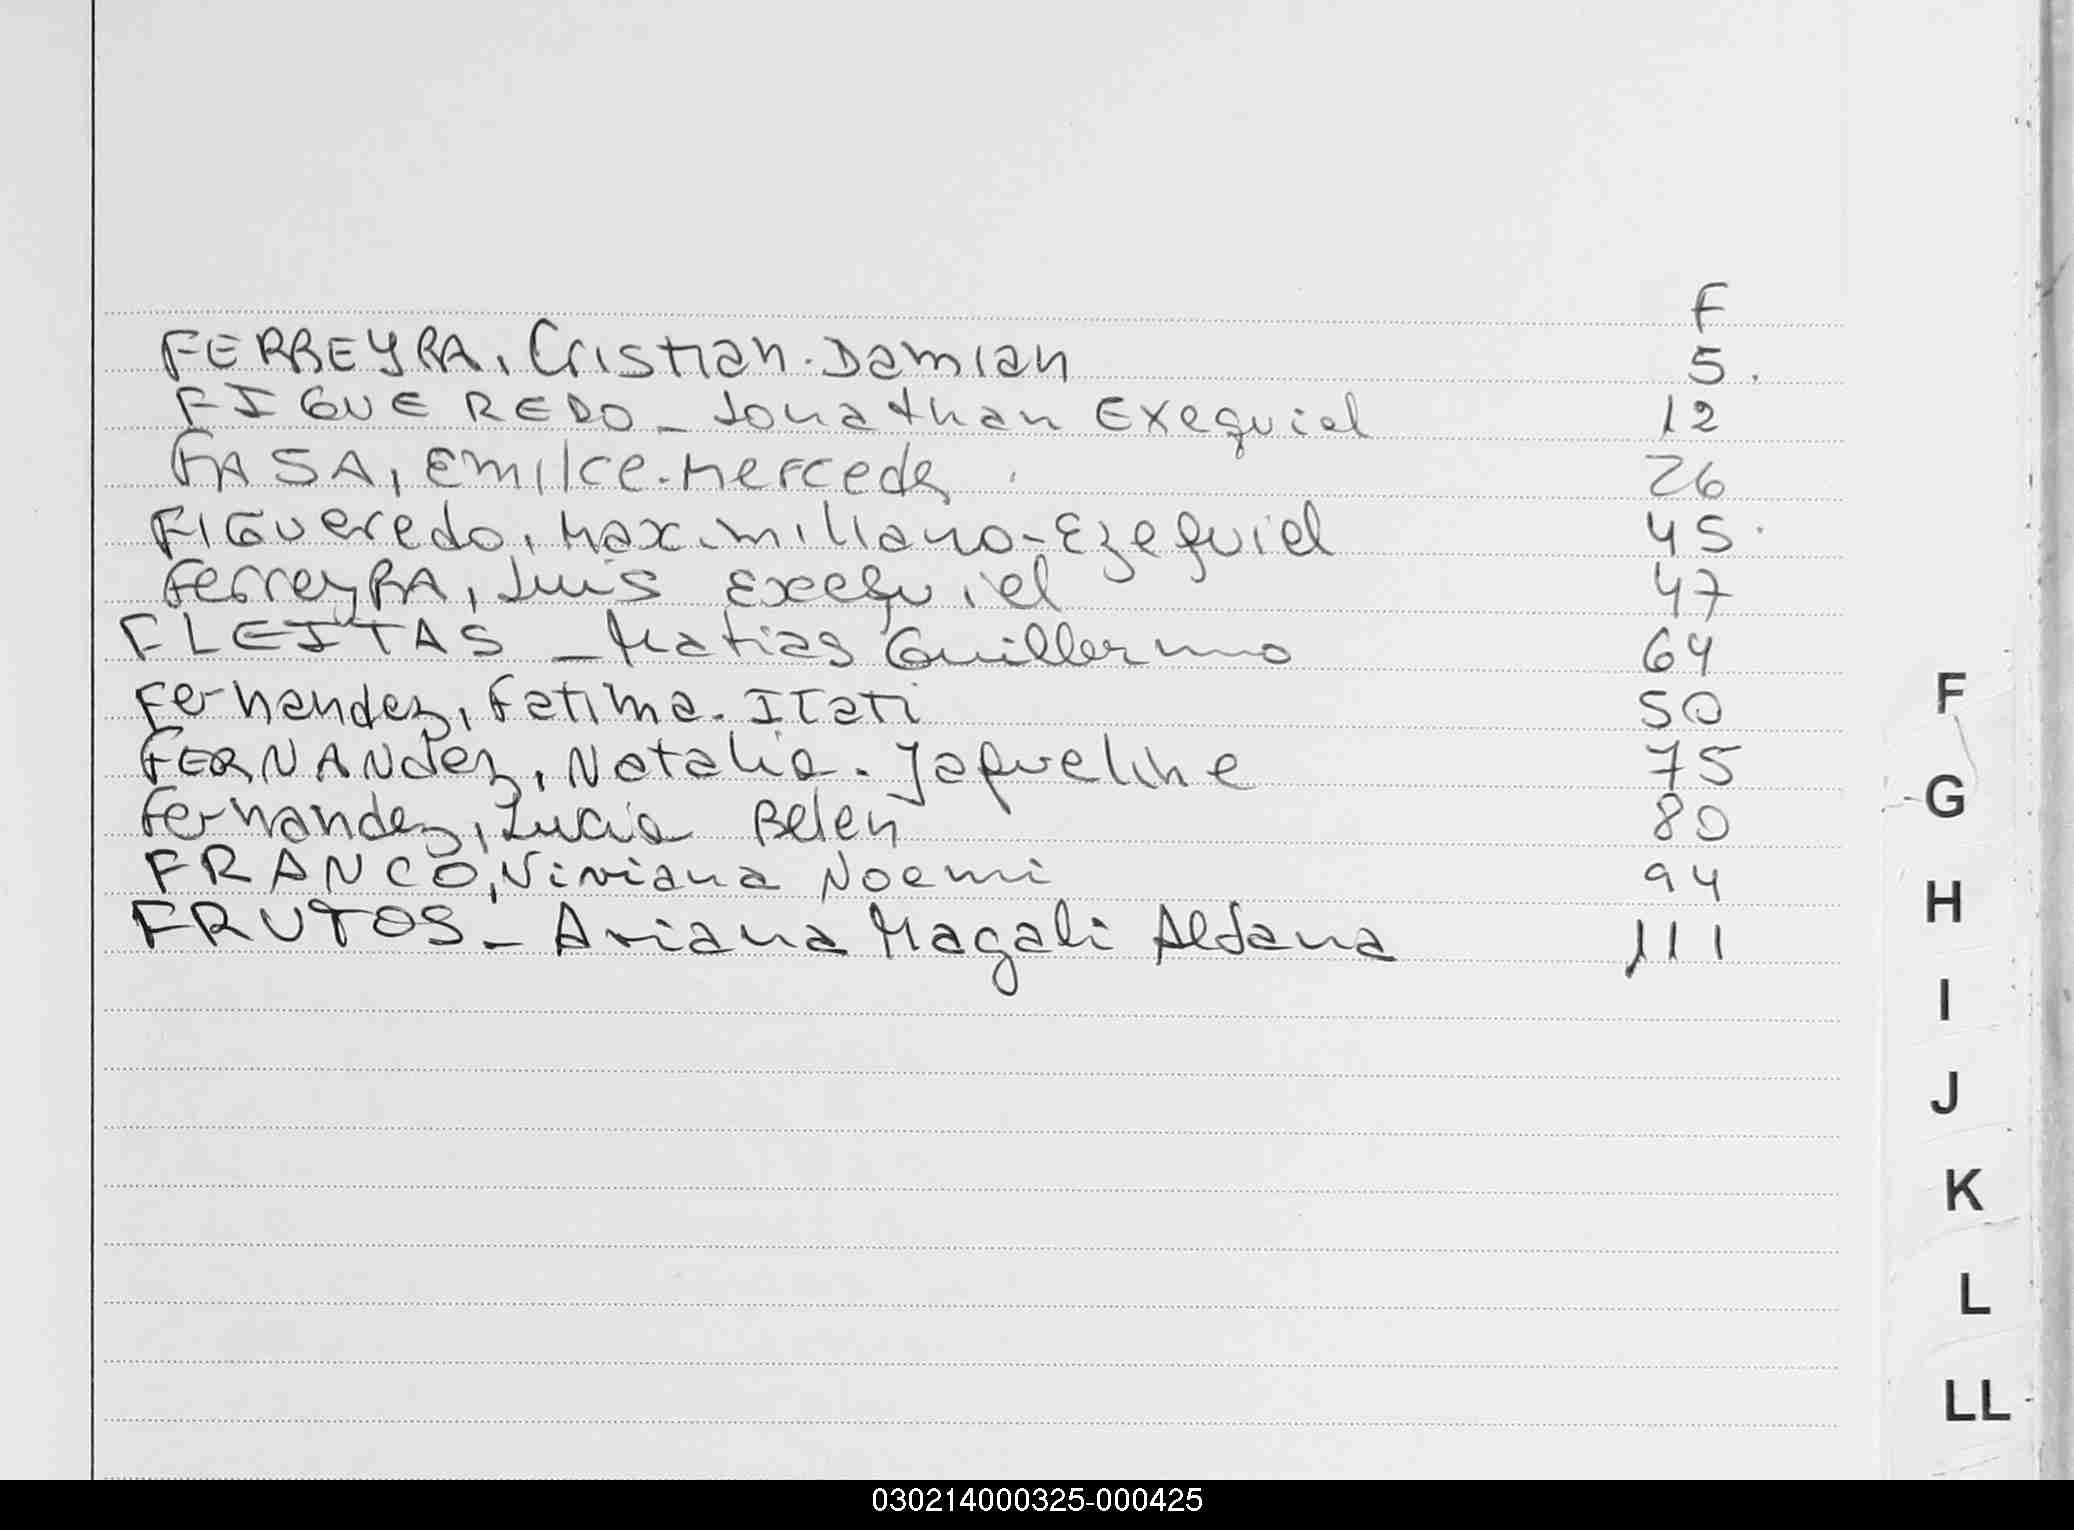 F
FERREYRA, Cristian. Damian 5.
FIGUEREDO_ Jonathan Exequiel 12
FASA, Emilce. Mercedes 26
FIGueredo, Maximiliano-Ezequiel 45.
FerreyRA, Luis Exequiel 47
FLEITAS _ Matias Guillermo 64
Fernandez, Fatima. Itati 50
FERNANdez, Natalia. Jaqueline 75
Fernandez, Lucia Belen 80
FRANCO, Viviana Noemi 94
FRUTOS_ Ariana Magali Aldana 111
F
G
H
I
J
K
L
LL
030214000325-000425